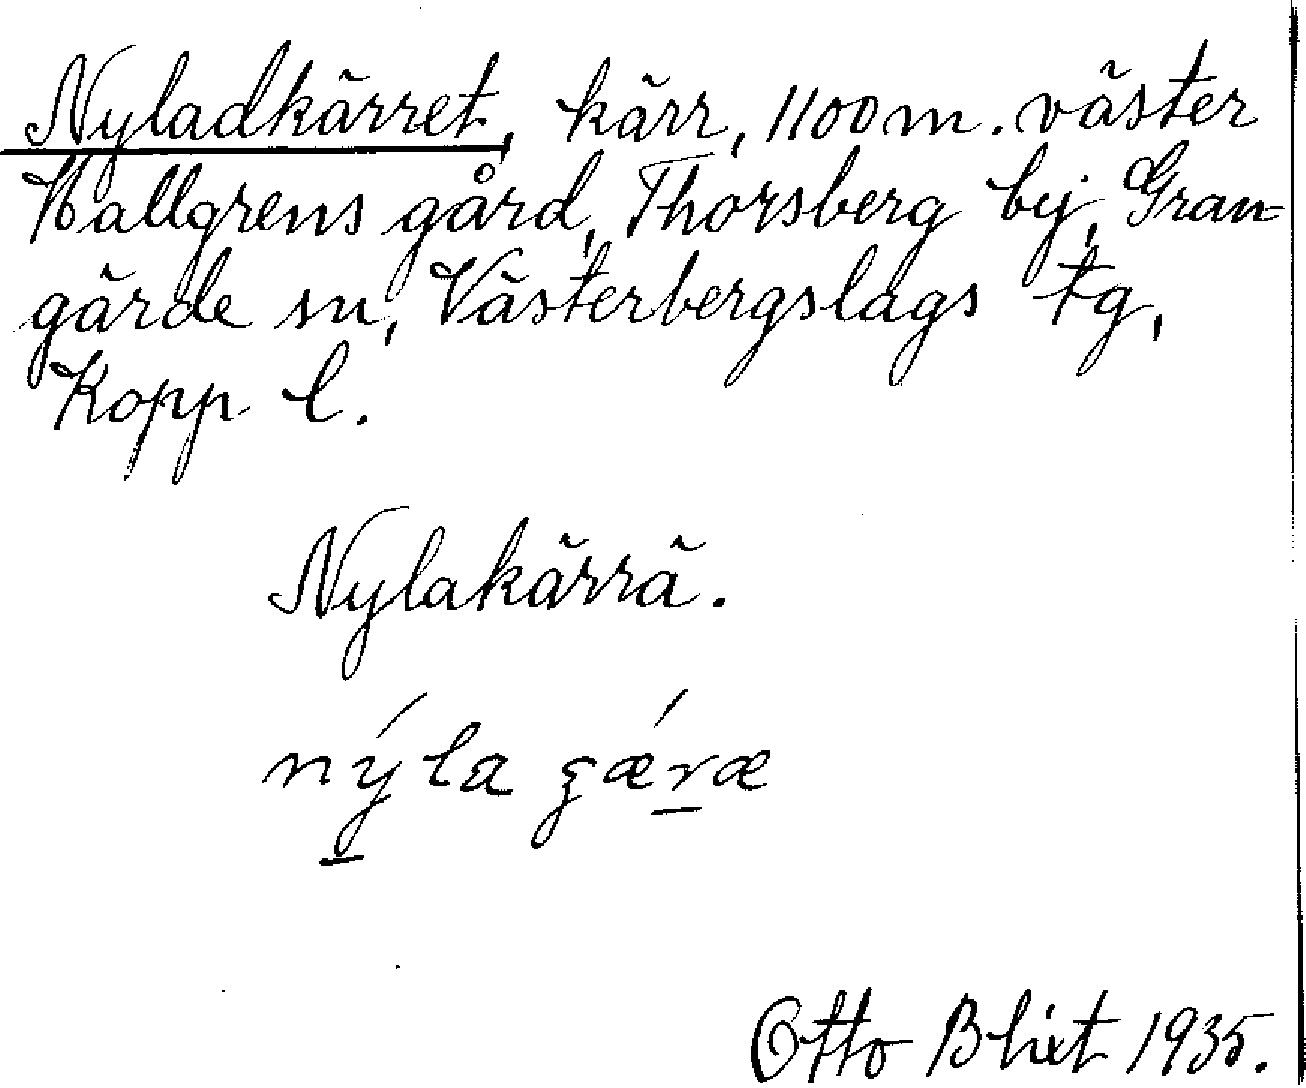 Nyladkärret, kärr, 1100 m. väster
Hallgrens gård, Thorsberg by, Gran-
gärde sn, Västerbergslags tg,
Kopp l.
Nylakärrä.
nýla
Otto Blixt 1935.